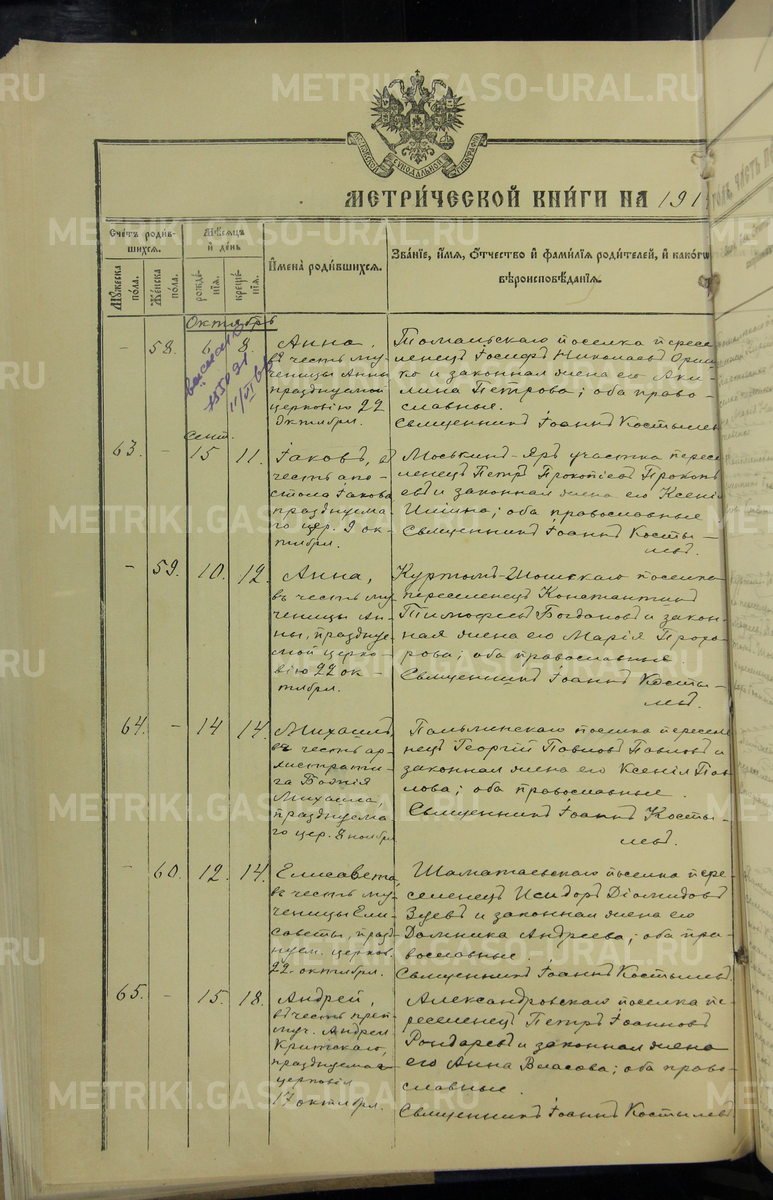 METRIKI.GASO-URAL.RU
МЕТРИ́ЧЕСКОЙ КНИ́ГИ НА 191
Сче́тъ роди́в-
шихся.
Му́жеска
по́ла.
Же́нска
по́ла.
Мѣ́сяцъ
и́ де́нь
рожде́-
нія.
креще́-
нія.
И҆мена̀ роди́вшихся.
Зва́ніе, и҆́мя, ѻ҆́тчество и҆ фами́лія роди́телей, и҆ како́гѡ
вѣроисповѣ́данія.
Октябрь
- 58. 6 8.
Анна,
въ честь му-
ченицы Анны
празднуемой
церковію 22
Октября.
поселка пересе-
ленецъ Іосифъ Николаевъ
и законная жена его Аки-
лина Петрова; оба право-
славные.
Священникъ Іоаннъ Костылевъ
сент.
63. - 15 11.
Іаковъ, въ
честь апо-
стола Іакова
празднуема-
го цер. 9 ок-
тября.
Моськинъ-Яръ участка пересе-
ленецъ Петръ Прокопіевъ Прокопь-
евъ и законная жена его Ксенія
оба православные
Священникъ Іоаннъ Косты-
левъ.
- 59. 10. 12.
Анна,
въ честь му-
ченицы Ан-
ны, праздну-
емой церко-
вію 22 ок-
тября.
поселка
переселенецъ Константинъ
Тимофеевъ Богдановъ и закон-
ная жена его Марія Прохо-
рова; оба православные.
Священникъ Іоаннъ Косты-
левъ.
64. - 14 14.
Михаилъ,
въ честь ар-
хистрати-
га Божія
Михаила,
празднуема
го цер. 8 ноября
поселка пересе-
нецъ Георгій Павловъ Павловъ и
законная жена его Ксенія Пав-
лова; оба православные.
Священникъ Іоаннъ Косты-
левъ.
- 60. 12. 14.
Елисавета,
въ честь му-
ченицы Ели-
саветы, празд-
нуем. церков.
22 октября.
поселка пере-
селенецъ Исидоръ Діомидовъ
Зуевъ и законная жена его
Домника Андреева; оба пра-
вославные.
Священникъ Іоаннъ Костылевъ.
65. - 15. 18.
Андрей,
въ честь преп.
муч. Андрея
Критскаго,
празднуемаго
церковія
17 октября.
Александровскаго поселка пе-
реселенецъ Петръ Іоанновъ
и законная жена
его Анна Власова; оба право-
славные.
Священникъ Іоаннъ Костылевъ